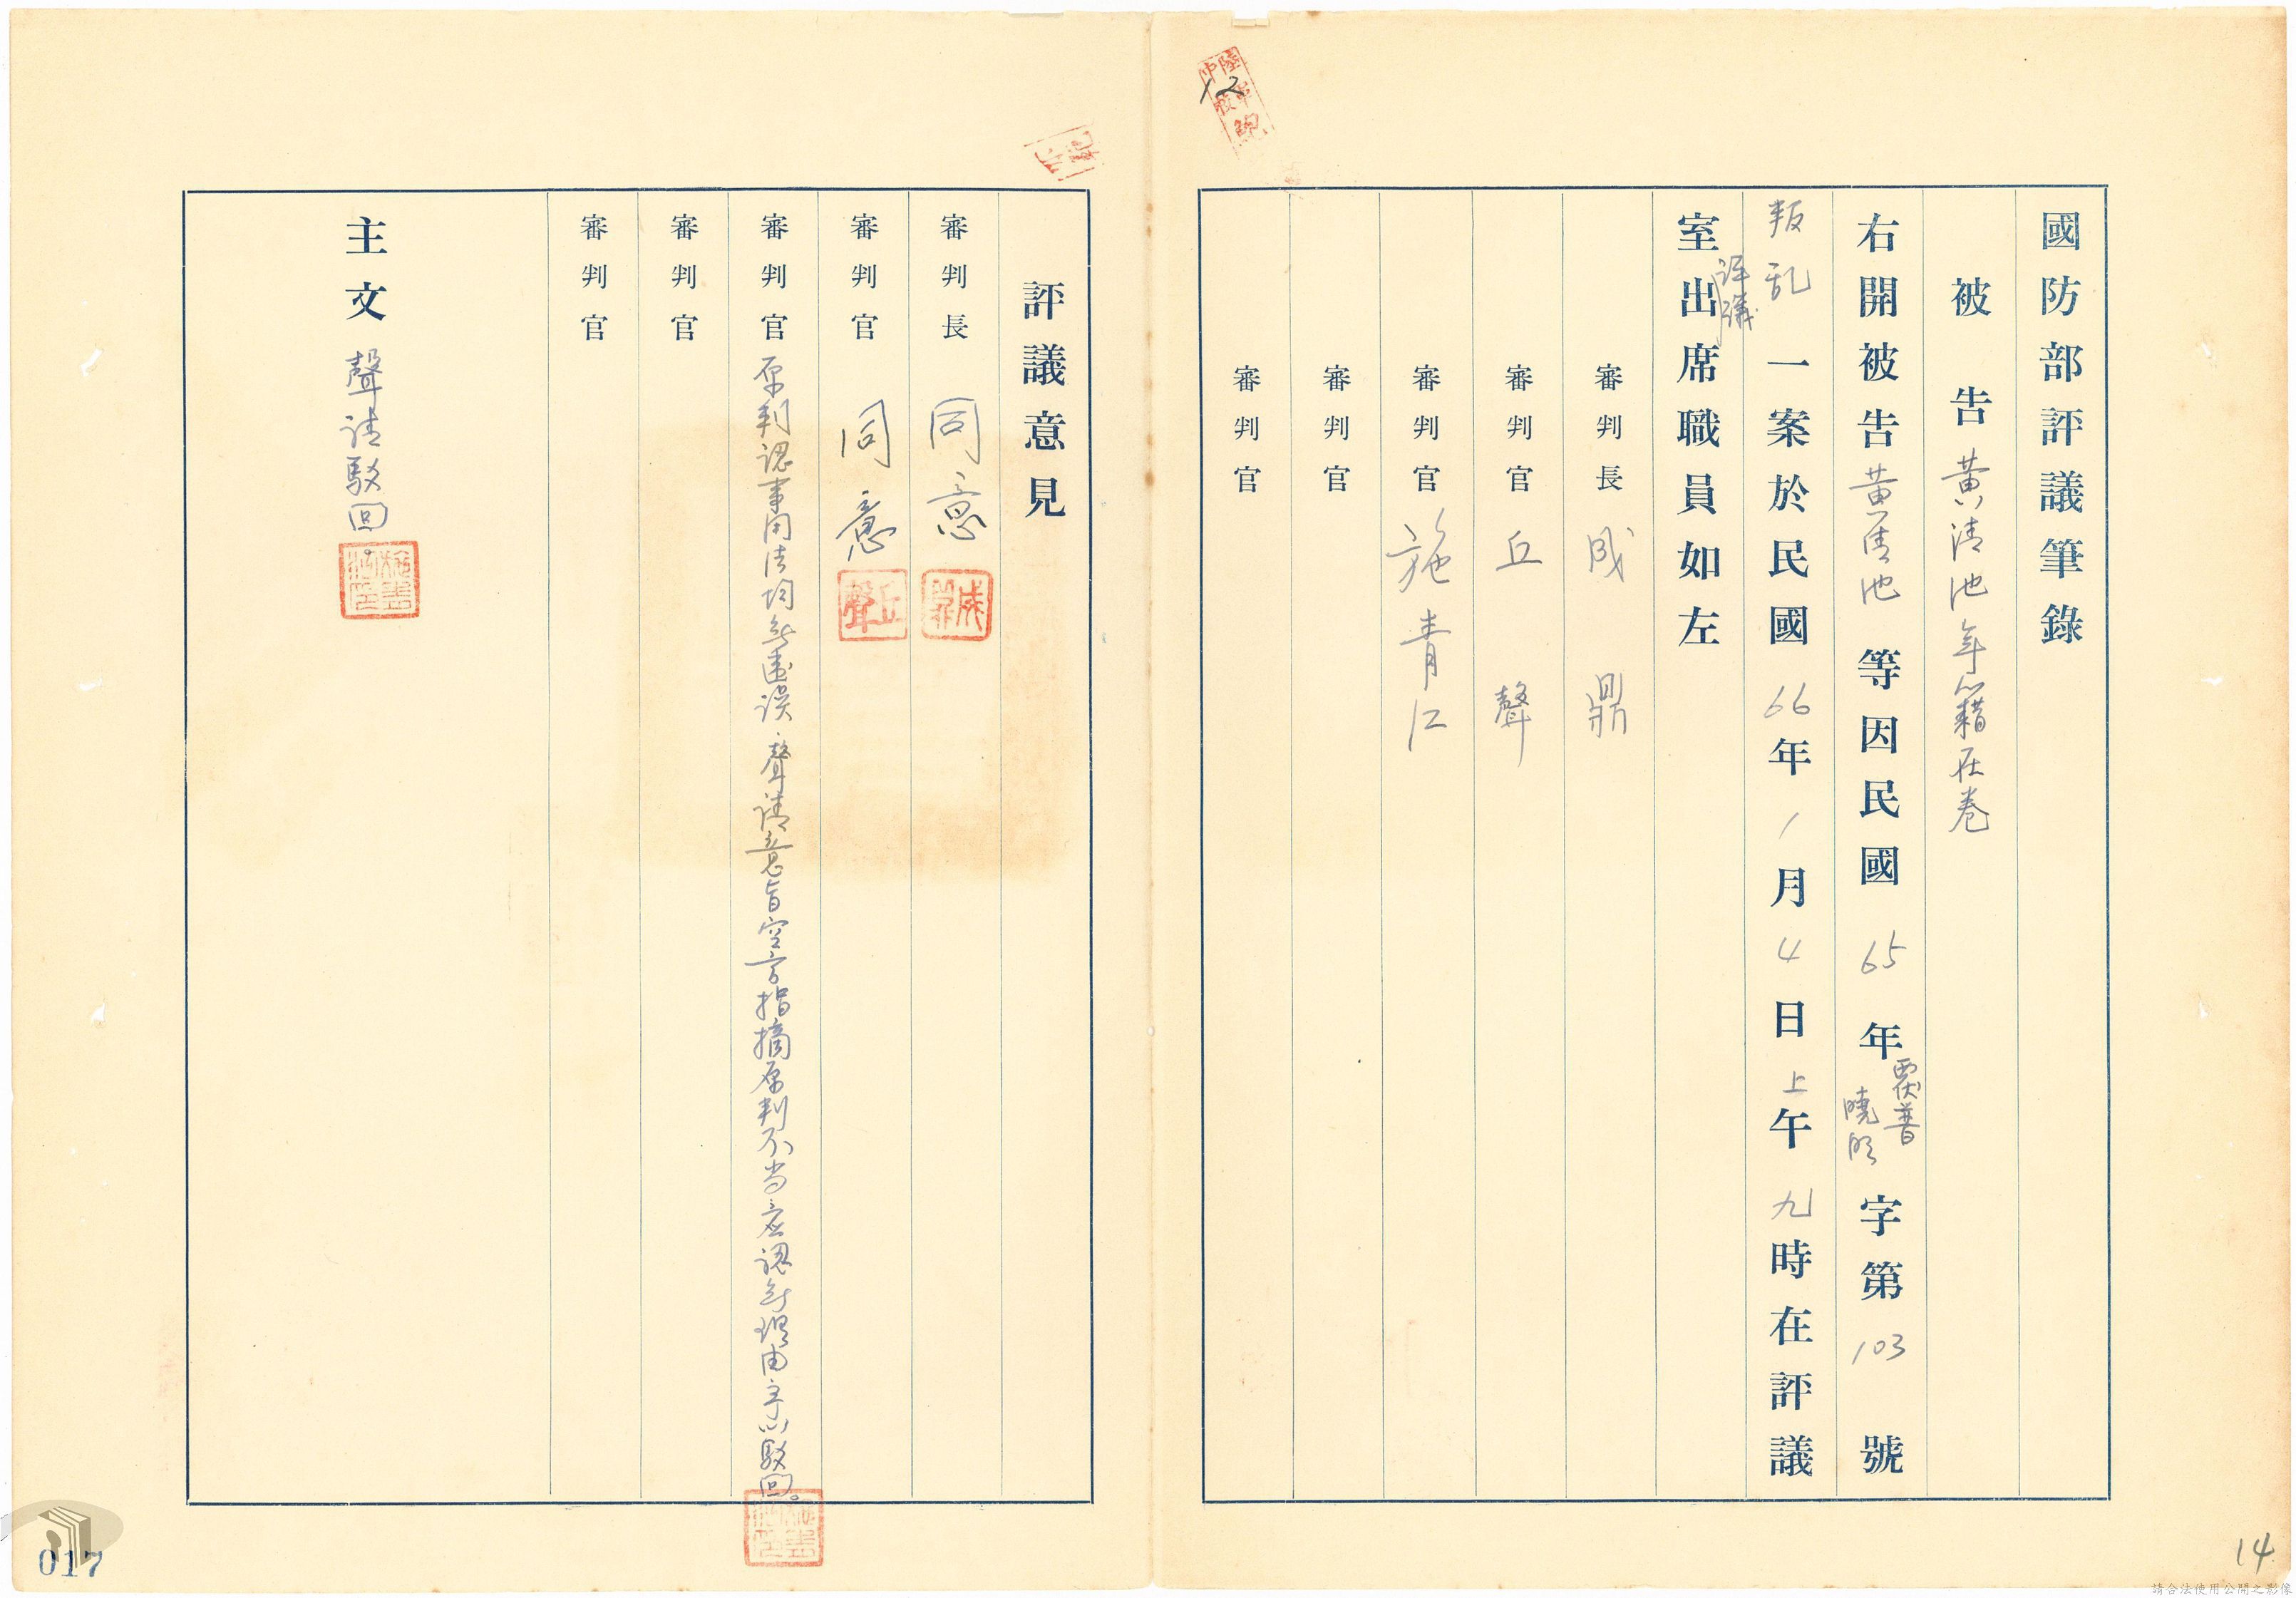 國防部評議筆錄
被告 黃清池 年籍在卷
右開被告 黃清池 等因民國 65 年 覆普 曉 字第 103 號
叛乱 一案於民國 66 年 1 月 4 日 上 午 九 時在評議
評議
室出席職員如左
審判長 成鼎
審判官 丘聲
審判官 施青江
審判官
審判官
評議意見
審判長 同意
成鼎
審判官 同意
丘聲
審判官 原判認事用法均無違誤，聲請意旨空言指摘原判不當應認無理由予以駁回。
審判官
審判官
主文 聲請駁回。
12
14
017
請合法使用公開之影像